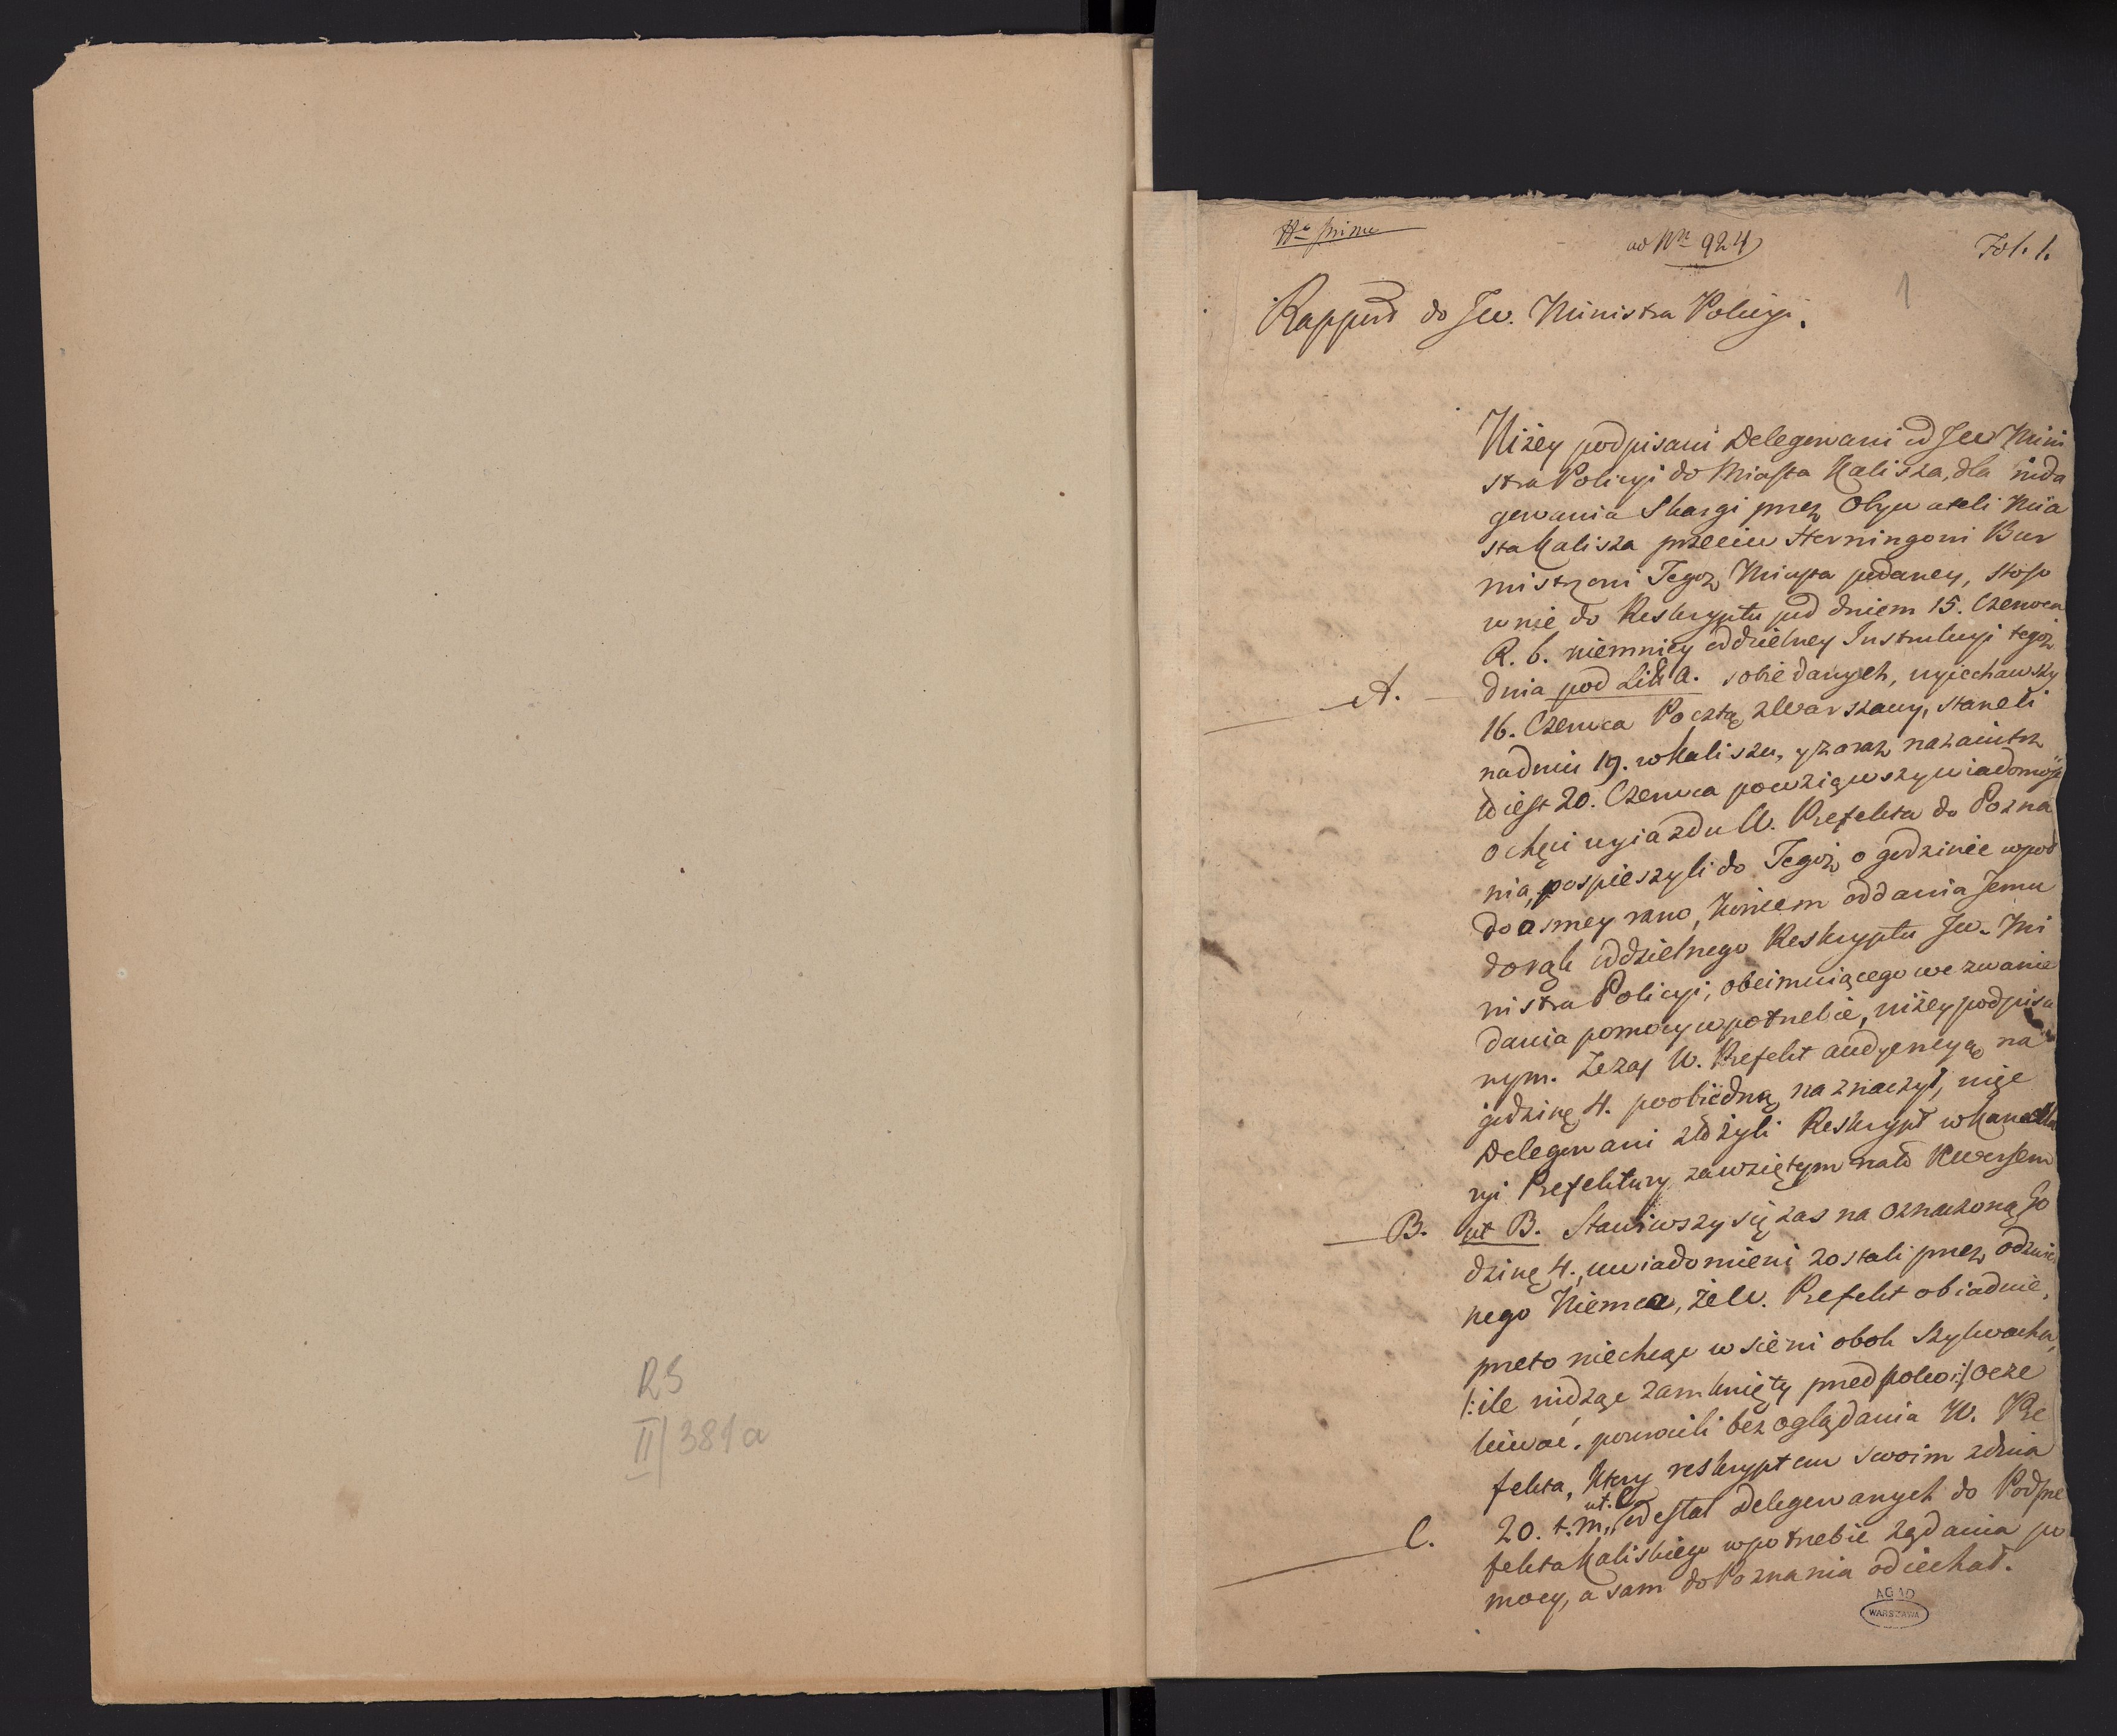 RS
II/381a
ad Nr 924
Fol. 1.
1
Rapport do Jw. Ministra Policyi.
Niżey podpisani Delegowani od Jw Mini
stra Policyi do Miasta Kalisza, dla inda
gowania Skargi przez Obywateli Mia
sta Kalisza przeciw Herningowi Bur
mistrzowi Tegoż Miasta podaney, stoso
wnie do Reskryptu pod dniem 15. Czerwca
R. b. niemniey oddzielney Instrukcyi tegoż
A. dnia pod Litt A. sobie danych, wyiechawszy
16. Czerwca Pocztą z Warszawy, staneli
na dniu 19. w Kaliszu, y zaraz nazaiutrz
to iest 20. Czerwca powziąwszy wiadomość
o chęci wyiazdu W. Prefekta do Pozna
nia, pospieszyli do Tegoż o godzinie wpoł
do osmey rano, koncem oddania Jemu
do rąk oddzielnego Reskryptu Jw. Mi
nistra Policyi, obeimuiącego wezwanie
dania pomocy w potrzebie, niżey podpisa
nym. Ze zaś W. Prefekt audyencyą na
godzinę 4. poobiedną naznaczył, więc
Delegowani złożyli Reskrypt w Kancella
ryi Prefektury za wziętym na to Rewersem
B. ut B. Stawiwszy się zas na oznaczoną go
dzinę 4., uwiadomieni zostali przez odzwier
nego Niemca, że W. Prefekt obiaduie,
przeto niechcąc w sieni obok Szylwacha,
/: ile widząc zamknięty przedpokoi :/ ocze
kiwać, powrócili bez oglądania W. Pre
fekta, który reskryptem swoim z dnia
C. 20. t. m. ut. C. odesłał Delegowanych do Podpre
fekta Kaliskiego w potrzebie żądania po
mocy, a sam do Poznania odiechał.
AGAD
WARSZAWA